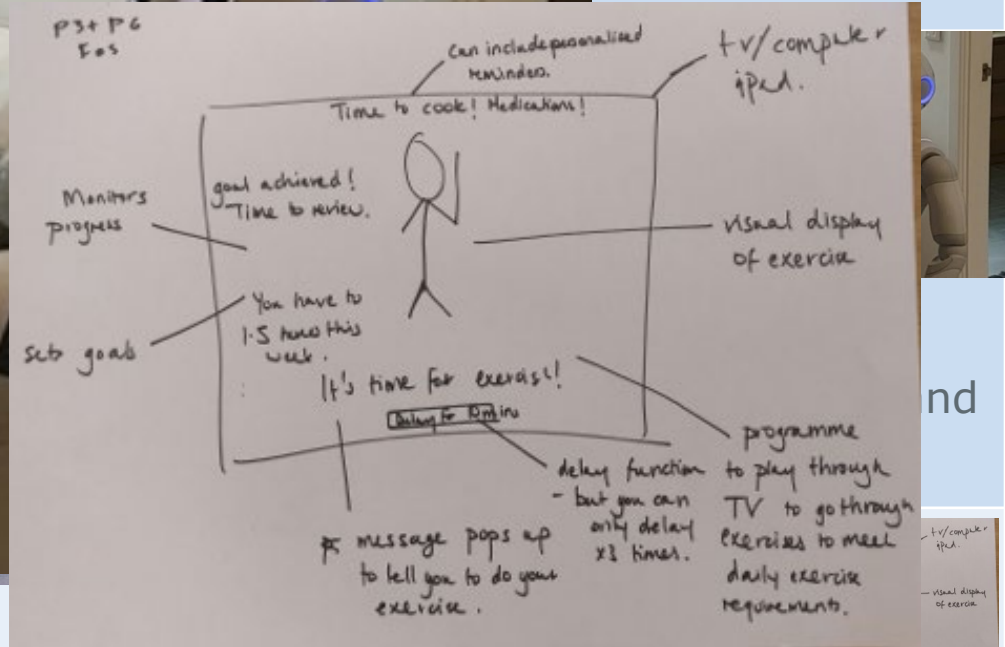 P3+ P6
Eos
Can include personalised
reminders.
tv/computer
ipad.
Time to cook! Medications!
goal achieved!
Time to review.
Monitors
progress
visual display
of exercise
You have to
1.5 this
week.
sets goals
It's time for exercise!
Delay for 10 mins
programme
to play through
TV to go through
exercises to meet
daily exercise
requirements.
delay function
- but you can
only delay
x3 times.
message pops up
to tell you to do your
exercise.
nd
tv/computer
ipad.
visual display
of exercise